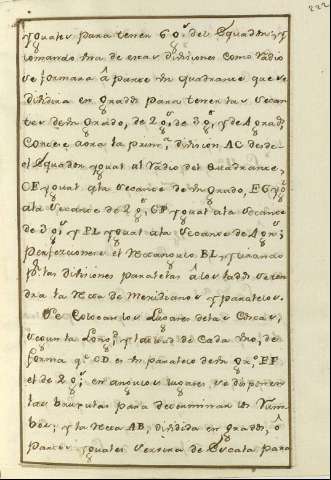 222
yguales para tener 60.s del Equador, y
tomando una de estas divisiones como Radio
se formara â parte un quadrante que se
dividira en grados para tener las secan
tes de un grado, de 2 g.s de 3 g.s y de 4 grad.s
Corte e aora la prim.a division AC desde
el Equador ygual al Radio del quadrante,
CE ygual a la secante de un Grado, EG y
a la secante de 2 g.s, GP ygual a la secante
de 3 g.s y PL ygual a la secante de 4 gr.s;
perfeccionese el Rectangulo BL y tirando
p.r las divisiones paralelas â los lados se ten
dra la Red de Meridianos y paralelos.
Se Colocan los Lugares de las Cartas,
segun la Long.d y de cada uno, de
forma q.e CD es un paralelo de un Gr.o EF
el de 2 g.s, en angulos lugares, se disponen
las bruxulas para determinar los Rum
bos; y la Recta AB, dividida en grados, ô
partes yguales servira de Escala para